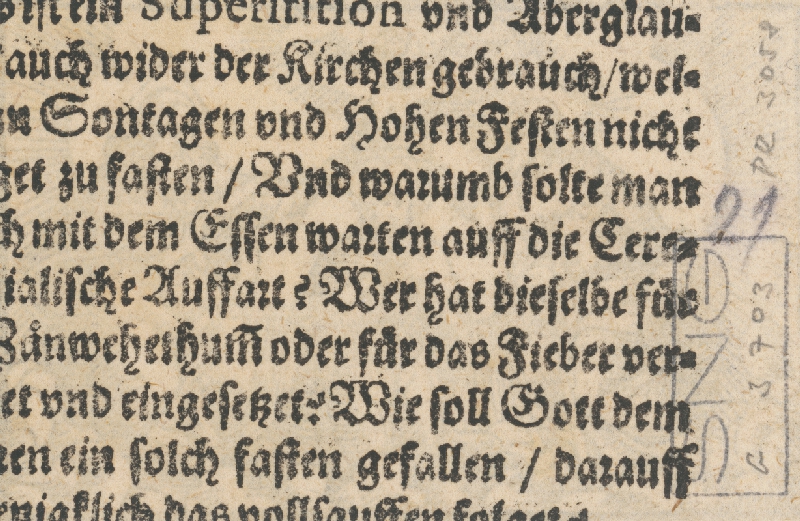 ist ein Superstition vnd Aberglau⸗
auch wider der Kirchen gebrauch/ wel⸗
Sontagen vnd Hohen Festen nicht
get zu fasten / Vnd warumb solte man
mit dem Essen warten auff die Cere⸗
ialische Auffart? Wer hat dieselbe für
Zånwehethum̃ oder für das Fieber ver⸗
et vnd eingesetzet? Wie soll Gott dem
ein solch fasten gefallen / darauff
das vollsauffen folget
PR 3054
91
SND
G 3703